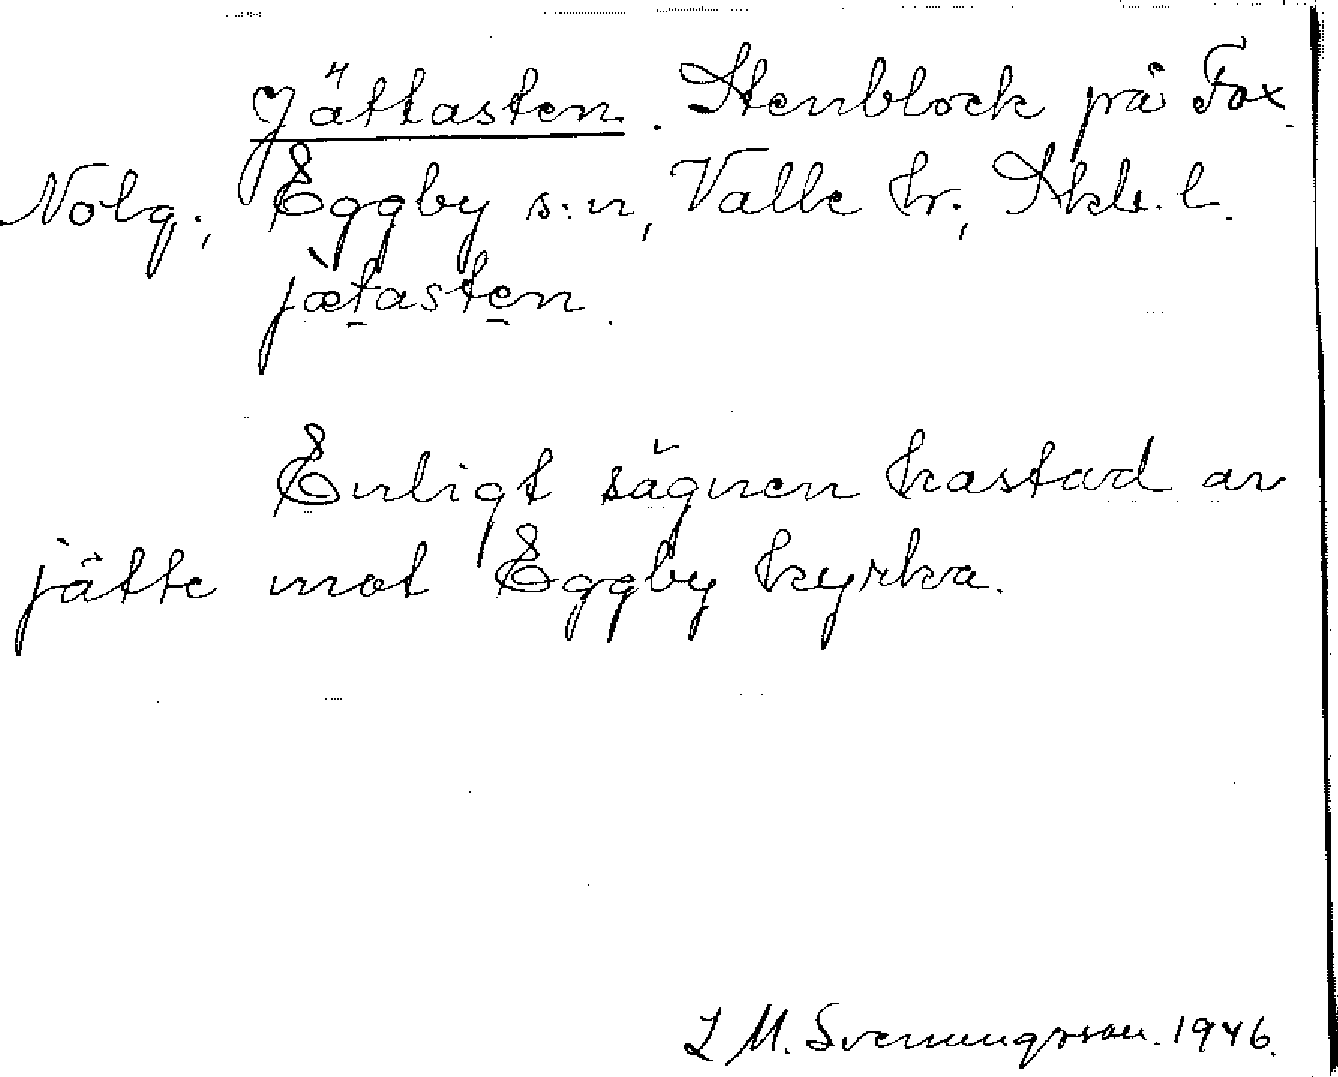 Jättasten. Stenblock på Fox
Nolg., Eggby s:n, Valle hr., Skbr. l.
jætasten.
Enligt sägnen kastad av
jätte mot Eggby kyrka.
L M. Svenungsson. 1946.